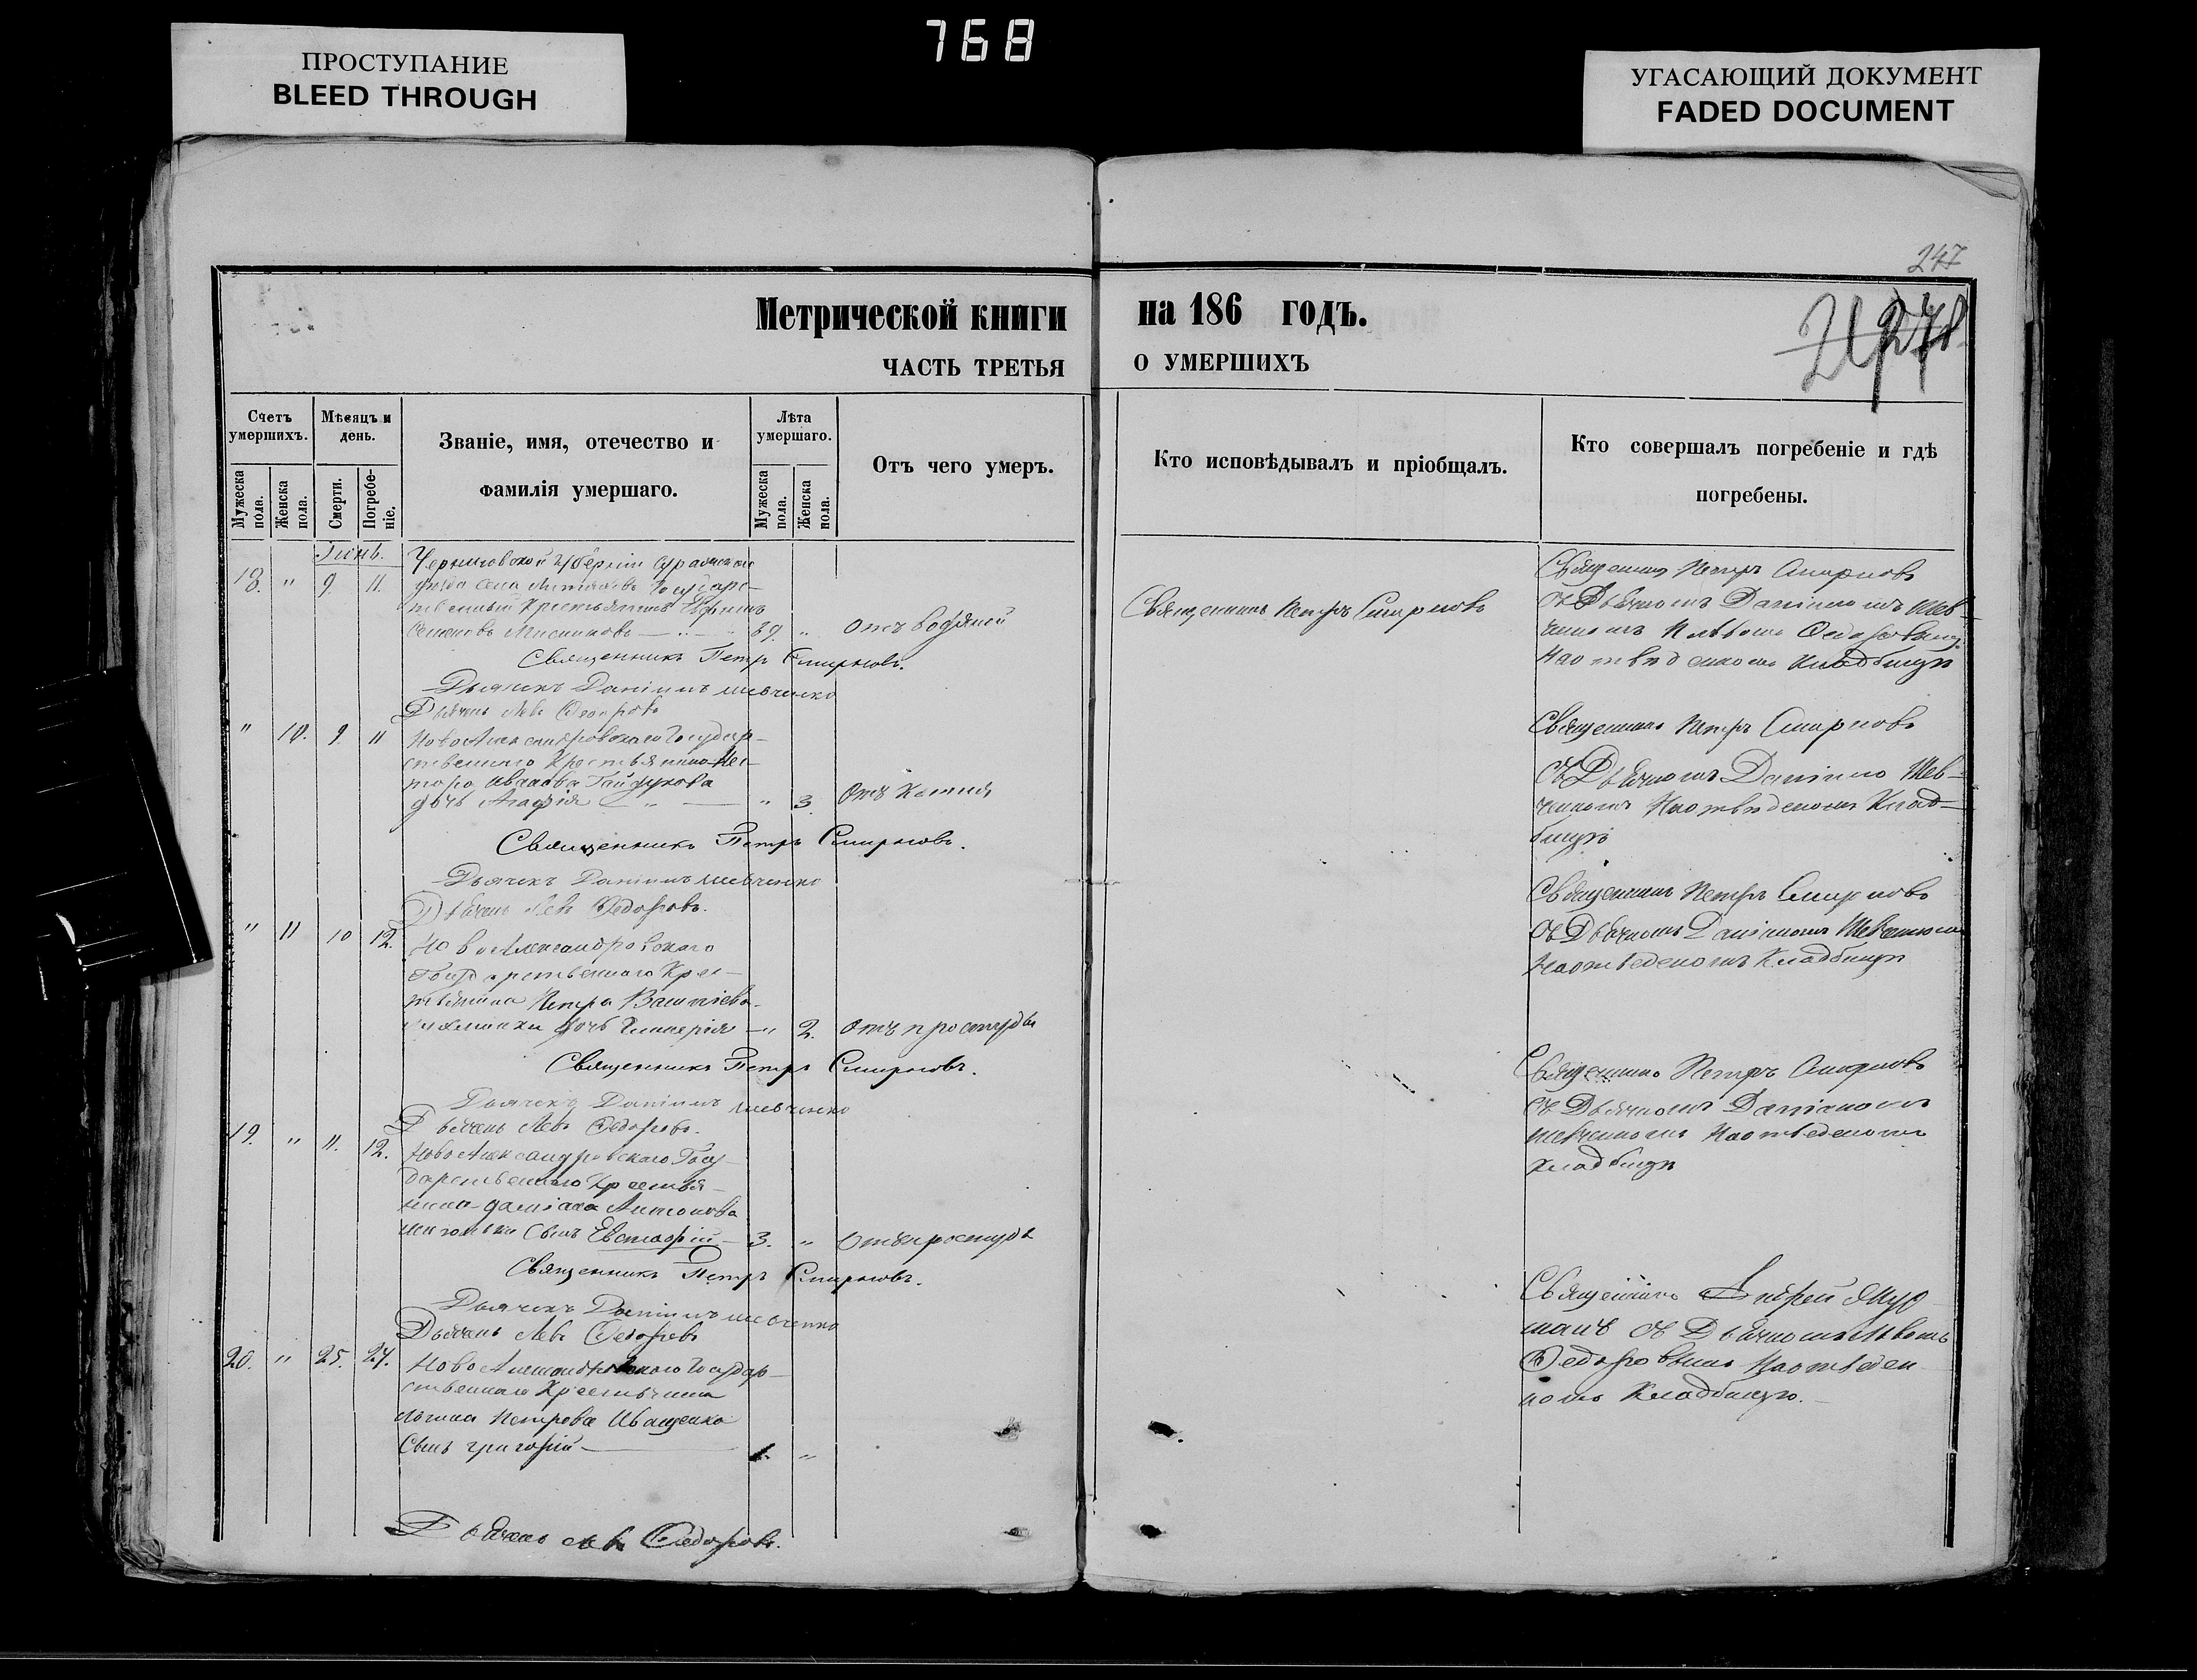 768
ПРОСТУПАНИЕ
BLEED THROUGH
УГАСАЮЩИЙ ДОКУМЕНТ
FADED DOCUMENT
247
278
Метрической книги на 186 годъ.
ЧАСТЬ ТРЕТЬЯ О УМЕРШИХЪ
Счетъ умершихъ.
Мѣсяцъ и день.
Званіе, имя, отечество и фамилія умершаго.
Лѣта умершаго.
Отъ чего умеръ.
Кто исповѣдывалъ и пріобщалъ.
Кто совершалъ погребеніе и гдѣ погребены.
Мужеска пола.
Женска пола.
Смерти.
Погребеніе.
Мужеска пола.
Женска пола.
Іюнь.
Черниговской губерніи Суражскаго
18. " 9. 11. уѣзда села Государ-
ственный Крестьянинъ
Семеновъ 39. " Отъ водяной
Священникъ Петръ Смирновъ
Священникъ Петръ Смирновъ
съ Дьячкомъ Даніиломъ Шев-
ченкомъ и Львомъ Федоровымъ
На отведеномъ кладбищѣ
Священникъ Петръ Смирновъ.
Дьячекъ Даніилъ Шевченко
Дьячекъ Левъ Федоровъ
" 10. 9. 11 Новоалександровскаго Государ-
ственнаго Крестьянина Нес-
тора Иванова Гайдукова
дочь Агафія " 3. Отъ
Священникъ Петръ Смирновъ
съ Дьячкомъ Даніиломъ Шев-
ченкомъ На отведеномъ Клад-
бищѣ
Священникъ Петръ Смирновъ.
Дьячекъ Даніилъ Шевченко
Дьячекъ Левъ Федоровъ.
" 11 10 12. Новоалександровскаго
Государственнаго Крес-
тьянина Петра
дочь Гликерія " 2. Отъ простуды
Священникъ Петръ Смирновъ
съ Дьячкомъ Даніиломъ Шевченкомъ
На отведеномъ Кладбищѣ
Священникъ Петръ Смирновъ.
Дьячекъ Даніилъ Шевченко
Дьячекъ Левъ Федоровъ.
19. " 11. 12. Новоалександровскаго Госу-
дарственнаго Крестья-
нина Даміана Антонова
Сынъ Евстафій 3. " Отъ простуды
Священникъ Петръ Смирновъ
съ Дьячкомъ Даніиломъ
Шевченкомъ На отведеномъ
Кладбищѣ
Священникъ Петръ Смирновъ.
Дьячекъ Даніилъ Шевченко
Дьячекъ Левъ Федоровъ
20. " 25. 27. Новоалександровскаго Государ-
ственнаго Крестьянина
Логина Петрова Иващенко
Сынъ Григорій 1. "
Священникъ Андрей
съ Дьячкомъ Львомъ
Федоровымъ На отведен-
номъ Кладбищѣ.
Дьячекъ Левъ Федоровъ.